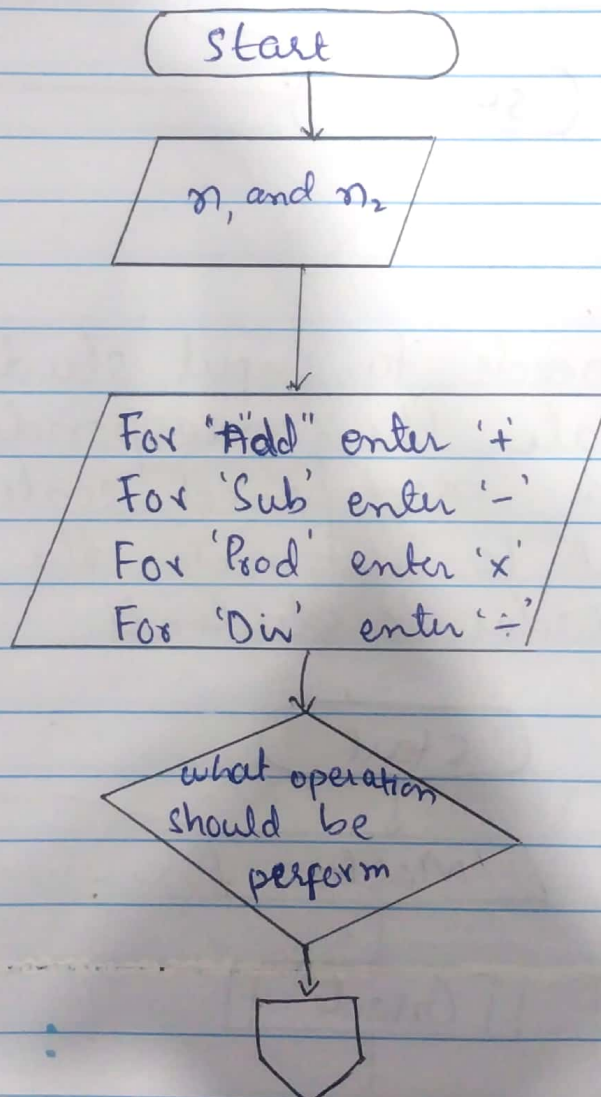 Start
n₁ and n₂
For "Add" enter '+'
For 'Sub' enter '-'
For 'Prod' enter 'x'
For 'Div' enter '÷'
what operation
should be
perform